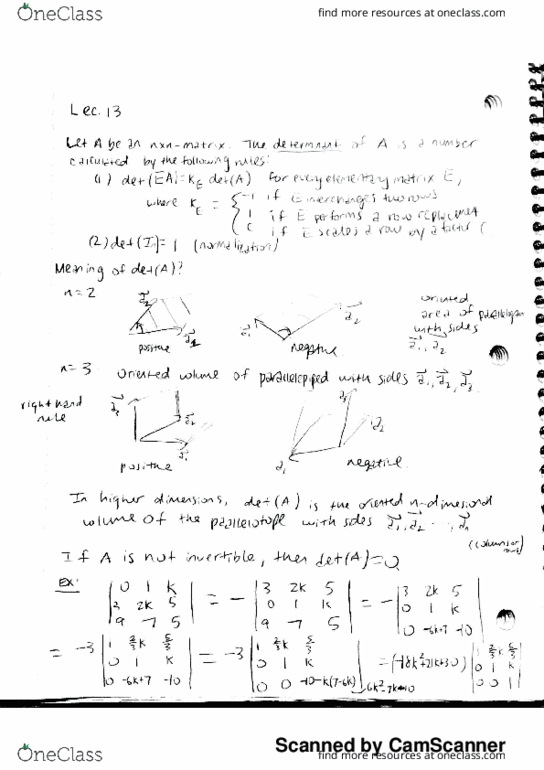 OneClass
find more resources at oneclass.com
Lec. 13
Let A be an nxn-matrix. The determinant of A is a number
calculated by the following rules:
(1) det(EA)=K_E det(A) for every elementary matrix E,
where K_E = { -1 if E interchanges two rows
1 if E performs a row replacement
c if E scales a row by a factor c
(2) det(I_n)=1 (normalization)
Meaning of det(A)?
n=2
a⃗2
a⃗1
positive
a⃗1
a⃗2
negative
oriented
area of parallelogram
with sides
a⃗1, a⃗2
n=3 oriented volume of parallelepiped with sides a⃗1, a⃗2, a⃗3
right hand
rule
a⃗3
a⃗2
a⃗1
positive
a⃗3
a⃗2
a⃗1
negative
In higher dimensions, det(A) is the oriented n-dimesional
volume of the parallelotope with sides a⃗1, a⃗2 ..., a⃗n
If A is not invertible, then det(A)=0
Ex:
|0 1 k| = - |3 2k 5| = - |3 2k 5|
|3 2k 5| |0 1 k| |0 1 k|
|9 7 5| |9 7 5| |0 -6k+7 -10|
= -3 |1 2/3k 5/3| = -3 |1 2/3k 5/3| = (-18k²+21k+30) |1 2/3k 5/3|
|0 1 k| |0 1 k| |0 1 k|
|0 -6k+7 -10| |0 0 -10-k(7-6k)| 6k²-7k-10 |0 0 1|
Scanned by CamScanner
OneClass
find more resources at oneclass.com